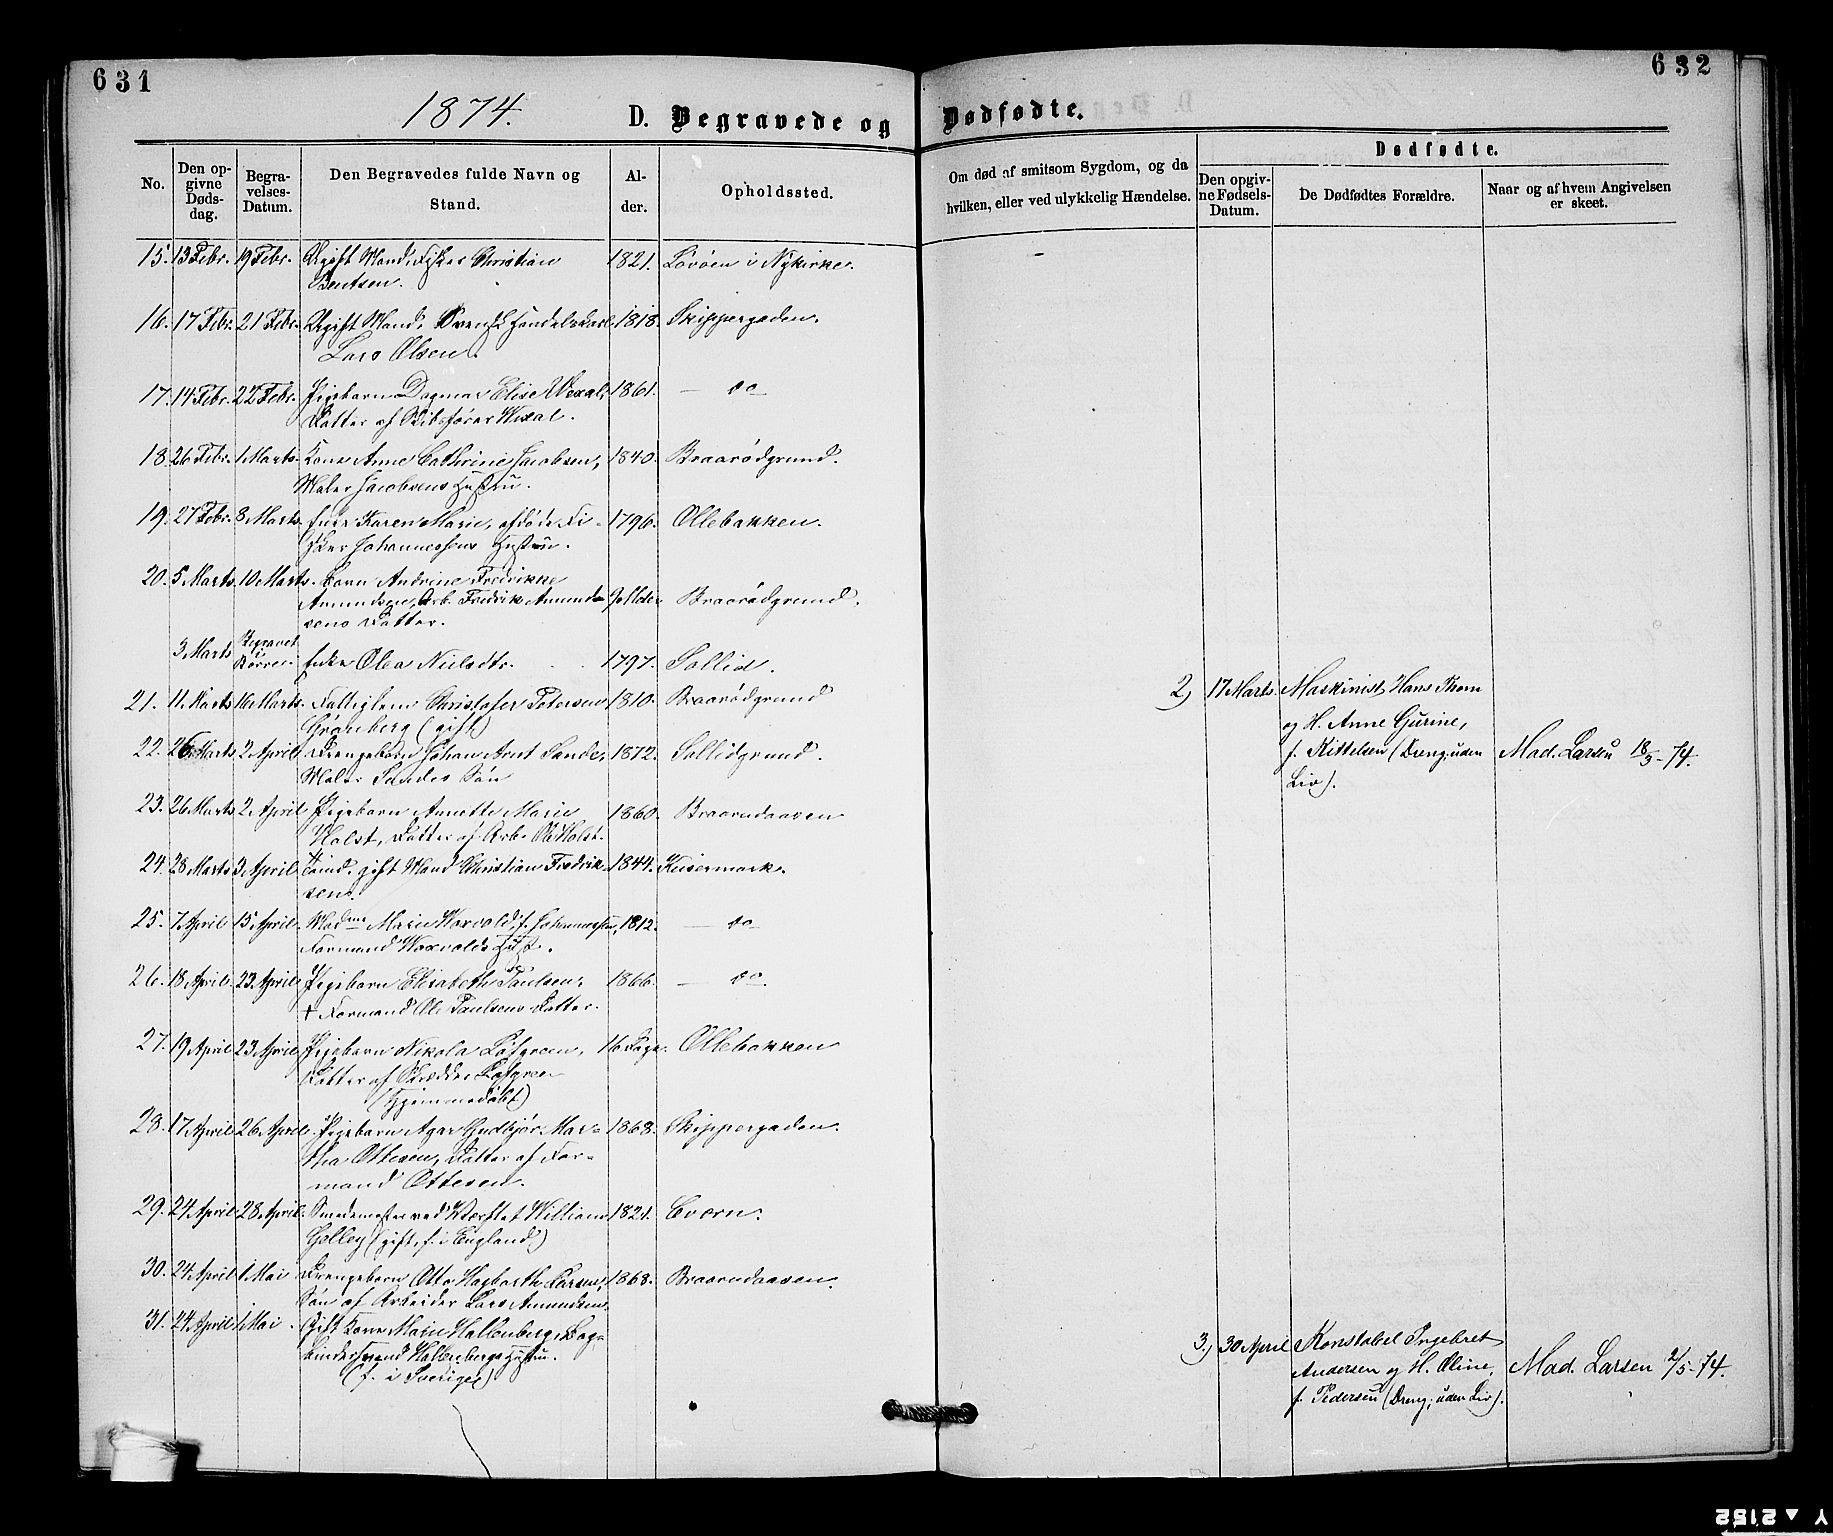 631
632
1874.
D. Begravede og Dødfødte.
No.
Den opgivne Dødsdag.
Begravelses-Datum.
Den Begravedes fulde Navn og Stand.
Alder.
Opholdssted.
Om død af smitsom Sygdom, og da hvilken, eller ved ulykkelig Hændelse.
Dødfødte.
Den opgivne Fødsels-Datum.
De Dødfødtes Forældre.
Naar og af hvem Angivelsen er skeet.
15. 13 Febr. 19 Febr. Ugift Mand, Fisker Christian 1821. Løvøen i Nykirke.
Bentsen.
16. 17 Febr. 21 Febr. Ugift Mand, Svensk Handelskarl 1818. Skippergaden.
Lars Olsen.
17. 14 Febr. 22 Febr. Pigebarn Dagmar Elise Wexal, 1861. — do —
Datter af Skibsfører Wexal.
18. 26 Febr. 1 Marts. Kone Anne Cathrine Jacobsen, 1840. Braarødgrund.
Maler Jacobsens Hustru.
19. 27 Febr. 8 Marts. Enke Karen Marie, afdøde Fi- 1796. Ollebakken.
sker Johannessens Hustru.
20. 5 Marts. 10 Marts. Barn Andrine Fredrikke
Amundsen, Arb. Fredrik Amund- Braarødgrund.
sens Datter.
3 Marts Begravet i Borre. Enke Olea Nielsdtr. 1797. Sollid.
21. 11 Marts 16 Marts. Fattiglem Christofer Petersen 1810. Braarødgrund
Grønberg (gift)
22. 26 Marts 2 April Drengebarn Johan Arnt Sande, 1872. Sollidgrund.
Maler Sandes Søn
23. 26 Marts 2 April Pigebarn Annette Marie 1860. Braarudaasen
Holst, Datter af Arb. Ole Holst.
24. 28 Marts 3 April Tømd. gift Mand Christian Fredrik- 1844. Keisermark.
sen.
25. 7 April 15 April. Madme Marie Woxvold, f. Johannessen, 1812. — do —
Formand Woxvolds Hust.
26. 18 April. 23 April Pigebarn Elisabeth Paulsen, 1866. — do —
† Formand Ole Paulsens Datter.
27. 19 April 23 April Pigebarn Nikola Løfgreen, 16 Dage. Ollebakken
Datter af Skrædder Løfgreen
(Hjemmedøbt)
28. 17 April 26 April. Pigebarn Agar Gudbjør Mar- 1868. Skippergaden.
tha Ottesen, Datter af For-
mand Ottesen.
29. 24 April 28 April. Smedemester ved Værftet William 1821.
Gelley (gift, f. i England.)
30. 24 April 1 Mai Drengebarn Otto Hagbarth Larsen, 1868. Braarudaasen.
Søn af Arbeider Lars Amundsen.
31. 24 April 1 Mai. Gift Kone Marie Hallenberg, Bog-
bindersvend Hallenbergs Hustru.
(f. i Sverige)
2) 17 Marts. Maskinist Hans Thom
og H. Anne Gurine,
f. Kittelsen (Dreng; uden Mad. Larsen 18/3 - 74.
Liv).
3) 30 April Konstabel Ingebret
Andersen og H. Oline, Mad. Larsen 2/5 - 74.
f. Pedersen (Dreng; uden Liv).
Y ▲ 2152